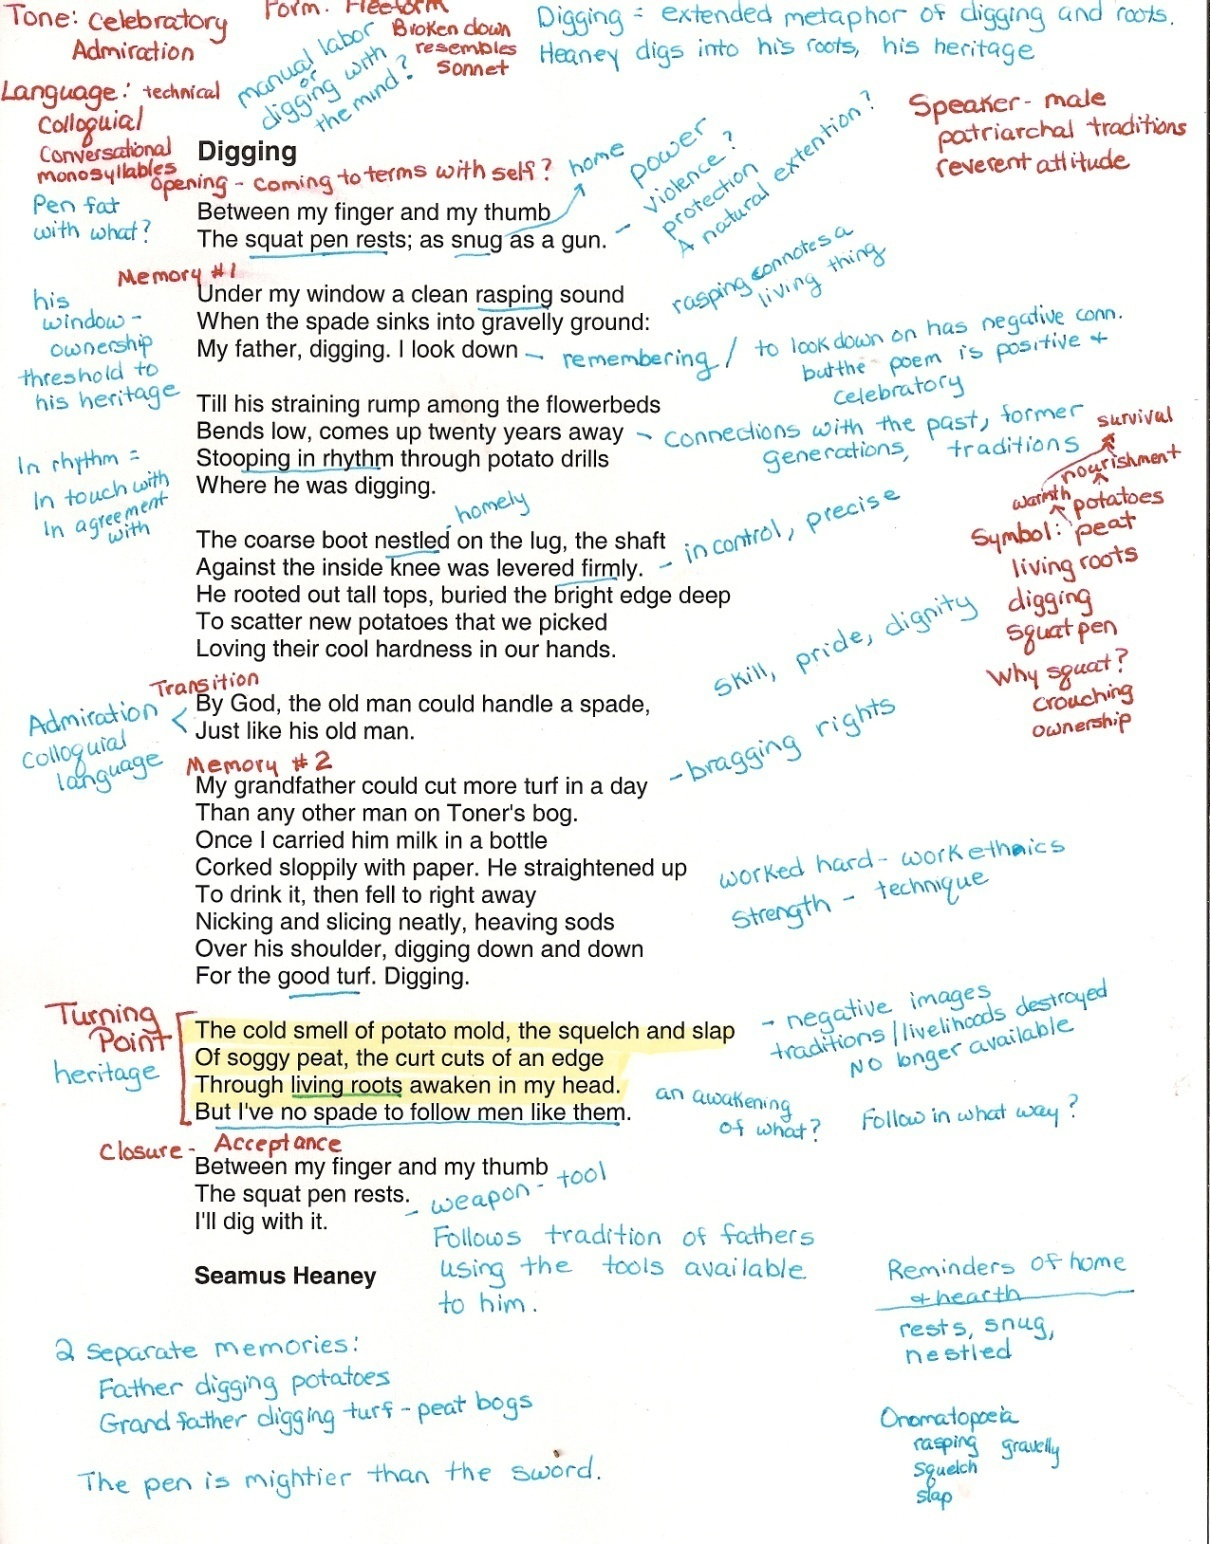 Tone: Celebratory
Admiration
Form: Freeform
Broken down
resembles
Sonnet
Digging = extended metaphor of digging and roots.
Heaney digs into his roots, his heritage
manual labor
or
digging with
the mind?
Language: technical
Colloquial
Conversational
monosyllables
Speaker - male
patriarchal traditions
reverent attitude
Digging
Opening - coming to terms with self?
home
power
violence?
protection
A natural extention?
Pen fat
with what?
Between my finger and my thumb
The squat pen rests; as snug as a gun.
Memory #1
rasping connotes a
living thing
his
window -
ownership
threshold to
his heritage
Under my window a clean rasping sound
When the spade sinks into gravelly ground:
My father, digging. I look down
remembering / to look down on has negative conn.
but the poem is positive +
celebratory
Till his straining rump among the flowerbeds
Bends low, comes up twenty years away
Stooping in rhythm through potato drills
Where he was digging.
connections with the past, former
generations, traditions
In rhythm =
In touch with
In agreement
with
survival
nourishment
warmth potatoes
Symbol: peat
living roots
digging
squat pen
Why squat?
crouching
ownership
homely
The coarse boot nestled on the lug, the shaft
Against the inside knee was levered firmly.
He rooted out tall tops, buried the bright edge deep
To scatter new potatoes that we picked
Loving their cool hardness in our hands.
in control, precise
Skill, pride, dignity
Transition
Admiration
colloquial
language
By God, the old man could handle a spade,
Just like his old man.
Memory #2
- bragging rights
My grandfather could cut more turf in a day
Than any other man on Toner's bog.
Once I carried him milk in a bottle
Corked sloppily with paper. He straightened up
To drink it, then fell to right away
Nicking and slicing neatly, heaving sods
Over his shoulder, digging down and down
For the good turf. Digging.
worked hard - work ethnics
Strength - technique
Turning
Point
heritage
The cold smell of potato mold, the squelch and slap
Of soggy peat, the curt cuts of an edge
Through living roots awaken in my head.
But I've no spade to follow men like them.
- negative images
traditions/livelihoods destroyed
No longer available
an awakening
of what?
Follow in what way?
Closure - Acceptance
Between my finger and my thumb
The squat pen rests.
I'll dig with it.
- weapon - tool
Follows tradition of fathers
using the tools available
to him.
Seamus Heaney
Reminders of home
+ hearth
rests, snug,
nestled
2 Separate memories:
Father digging potatoes
Grandfather digging turf - peat bogs
The pen is mightier than the sword.
Onomatopoeia
rasping gravelly
squelch
slap